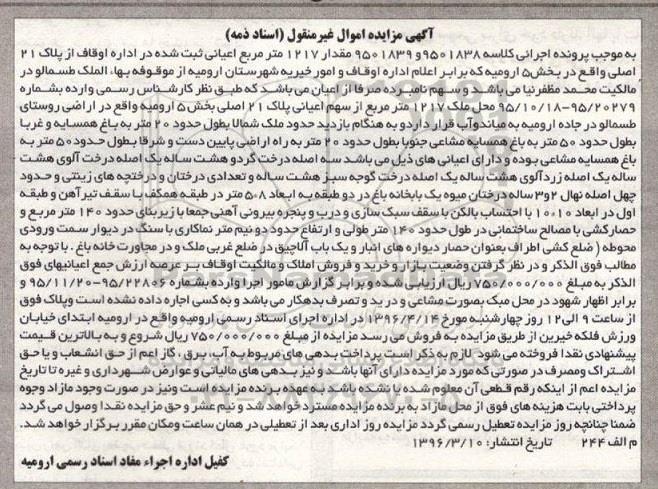 آگهی مزایده اموال غیرمنقول (اسناد ذمه)
به موجب پرونده اجرائی کلاسه ۹۵۰۱۸۳۸و ۹۵۰۱۸۳۹ مقدار ۱۲۱۷ متر مربع اعیانی ثبت شده در اداره اوقاف از پلاک ۲۱
اصلی واقع در بخش۵ ارومیه که برابر اعلام اداره اوقاف و امور خیریه شهرستان ارومیه از موقوفه بهاء الملک طسمالو در
مالکیت محمد مظفرنیا می باشد و سهم نامبرده صرفا از اعیان می باشد که طبق نظر کارشناس رسمی وارده بشماره
۹۵/۲۰۲۷۹-۹۵/۱۰/۱۸ محل ملک ۱۲۱۷ متر مربع از سهم اعیانی پلاک ۲۱ اصلی بخش۵ ارومیه واقع در اراضی روستای
طسمالو در جاده ارومیه به قرار دارد و به هنگام بازدید حدود ملک شمالا بطول حدود ۲۰ متر به باغ همسایه و غربا
بطول حدود ۵۰ متر به باغ همسایه مشاعی جنوبا بطول حدود ۲۰ متر به راه اراضی پایین دست و شرقا بطول حدود ۵۰ متر به
باغ همسایه مشاعی بوده و دارای اعیانی های ذیل می باشد سه اصله درخت گردو هشت ساله یک اصله درخت آلوی هشت
ساله یک اصله زردآلوی هشت ساله یک اصله درخت گوجه سبز هشت ساله و تعدادی درختان و درختچه های زینتی و حدود
چهل اصله نهال ۲و۳ ساله درختان میوه یک باغ در دو طبقه به ابعاد ۸*۵ متر در طبقه همکف با سقف تیرآهن و طبقه
اول در ابعاد ۱۰*۱۰ با احتساب بالکن با سقف سبک سازی و درب و پنجره بیرونی آهنی جمعا با زیربنای حدود ۱۴۰ متر مربع و
حصارکشی با مصالح ساختمانی در طول حدود ۱۴۰ متر طولی و ارتفاع حدود دو نیم متر نماکاری با سنگ در دیوار سمت ورودی
محوطه ( ضلع کشی اطراف بعنوان حصار دیواره های انبار و یک باب آلاچیق در ضلع غربی ملک و در مجاورت خانه باغ . با توجه به
مطالب فوق الذکر و در نظر گرفتن وضعیت بازار و خرید و فروش املاک و مالکیت اوقاف بر عرصه ارزش جمع اعیانیهای فوق
الذکر به مبلغ ۷۵۰/۰۰۰/۰۰۰ ریال ارزیابی شده و برابر گزارش مامور اجرا وارده بشماره ۹۵/۲۲۸۰۶-۹۵/۱۱/۲۰ و
برابر اظهار شهود در محل مبک بصورت مشاعی و در ید و تصرف بدهکار می باشد و به کسی اجاره داده نشده است و پلاک فوق
از ساعت ۹ الی ۱۲ روز چهارشنبه مورخ ۱۳۹۶/۴/۱۴ در اداره اجرای اسناد رسمی ارومیه واقع در ارومیه ابتدای خیابان
ورزش فلکه خیرین از طریق مزایده به فروش می رسد مزایده از مبلغ ۷۵۰/۰۰۰/۰۰۰ ریال شروع و به بالاترین قیمت
پیشنهادی نقدا فروخته می شود لازم به ذکر است پرداخت بدهی های مربوط به آب، برق، گاز اعم از حق انشعاب و یا حق
اشتراک و مصرف در صورتی که مورد مزایده دارای آنها باشد و نیز بدهی های مالیاتی و عوارض شهرداری و غیره تا تاریخ
مزایده اعم از اینکه رقم قطعی آن معلوم شده یا نشده باشد به عهده برنده مزایده است و نیز در صورت وجود مازاد وجوه
پرداختی بابت هزینه های فوق از محل مازاد به برنده مزایده مسترد خواهد شد و نیم عشر و حق مزایده نقدا وصول می گردد
ضمنا چنانچه روز مزایده تعطیل رسمی گردد مزایده روز اداری بعد از تعطیلی در همان ساعت و مکان مقرر برگزار خواهد شد.
م الف ۲۴۴ تاریخ انتشار: ۱۳۹۶/۳/۱۰
کفیل اداره اجراء مفاد اسناد رسمی ارومیه